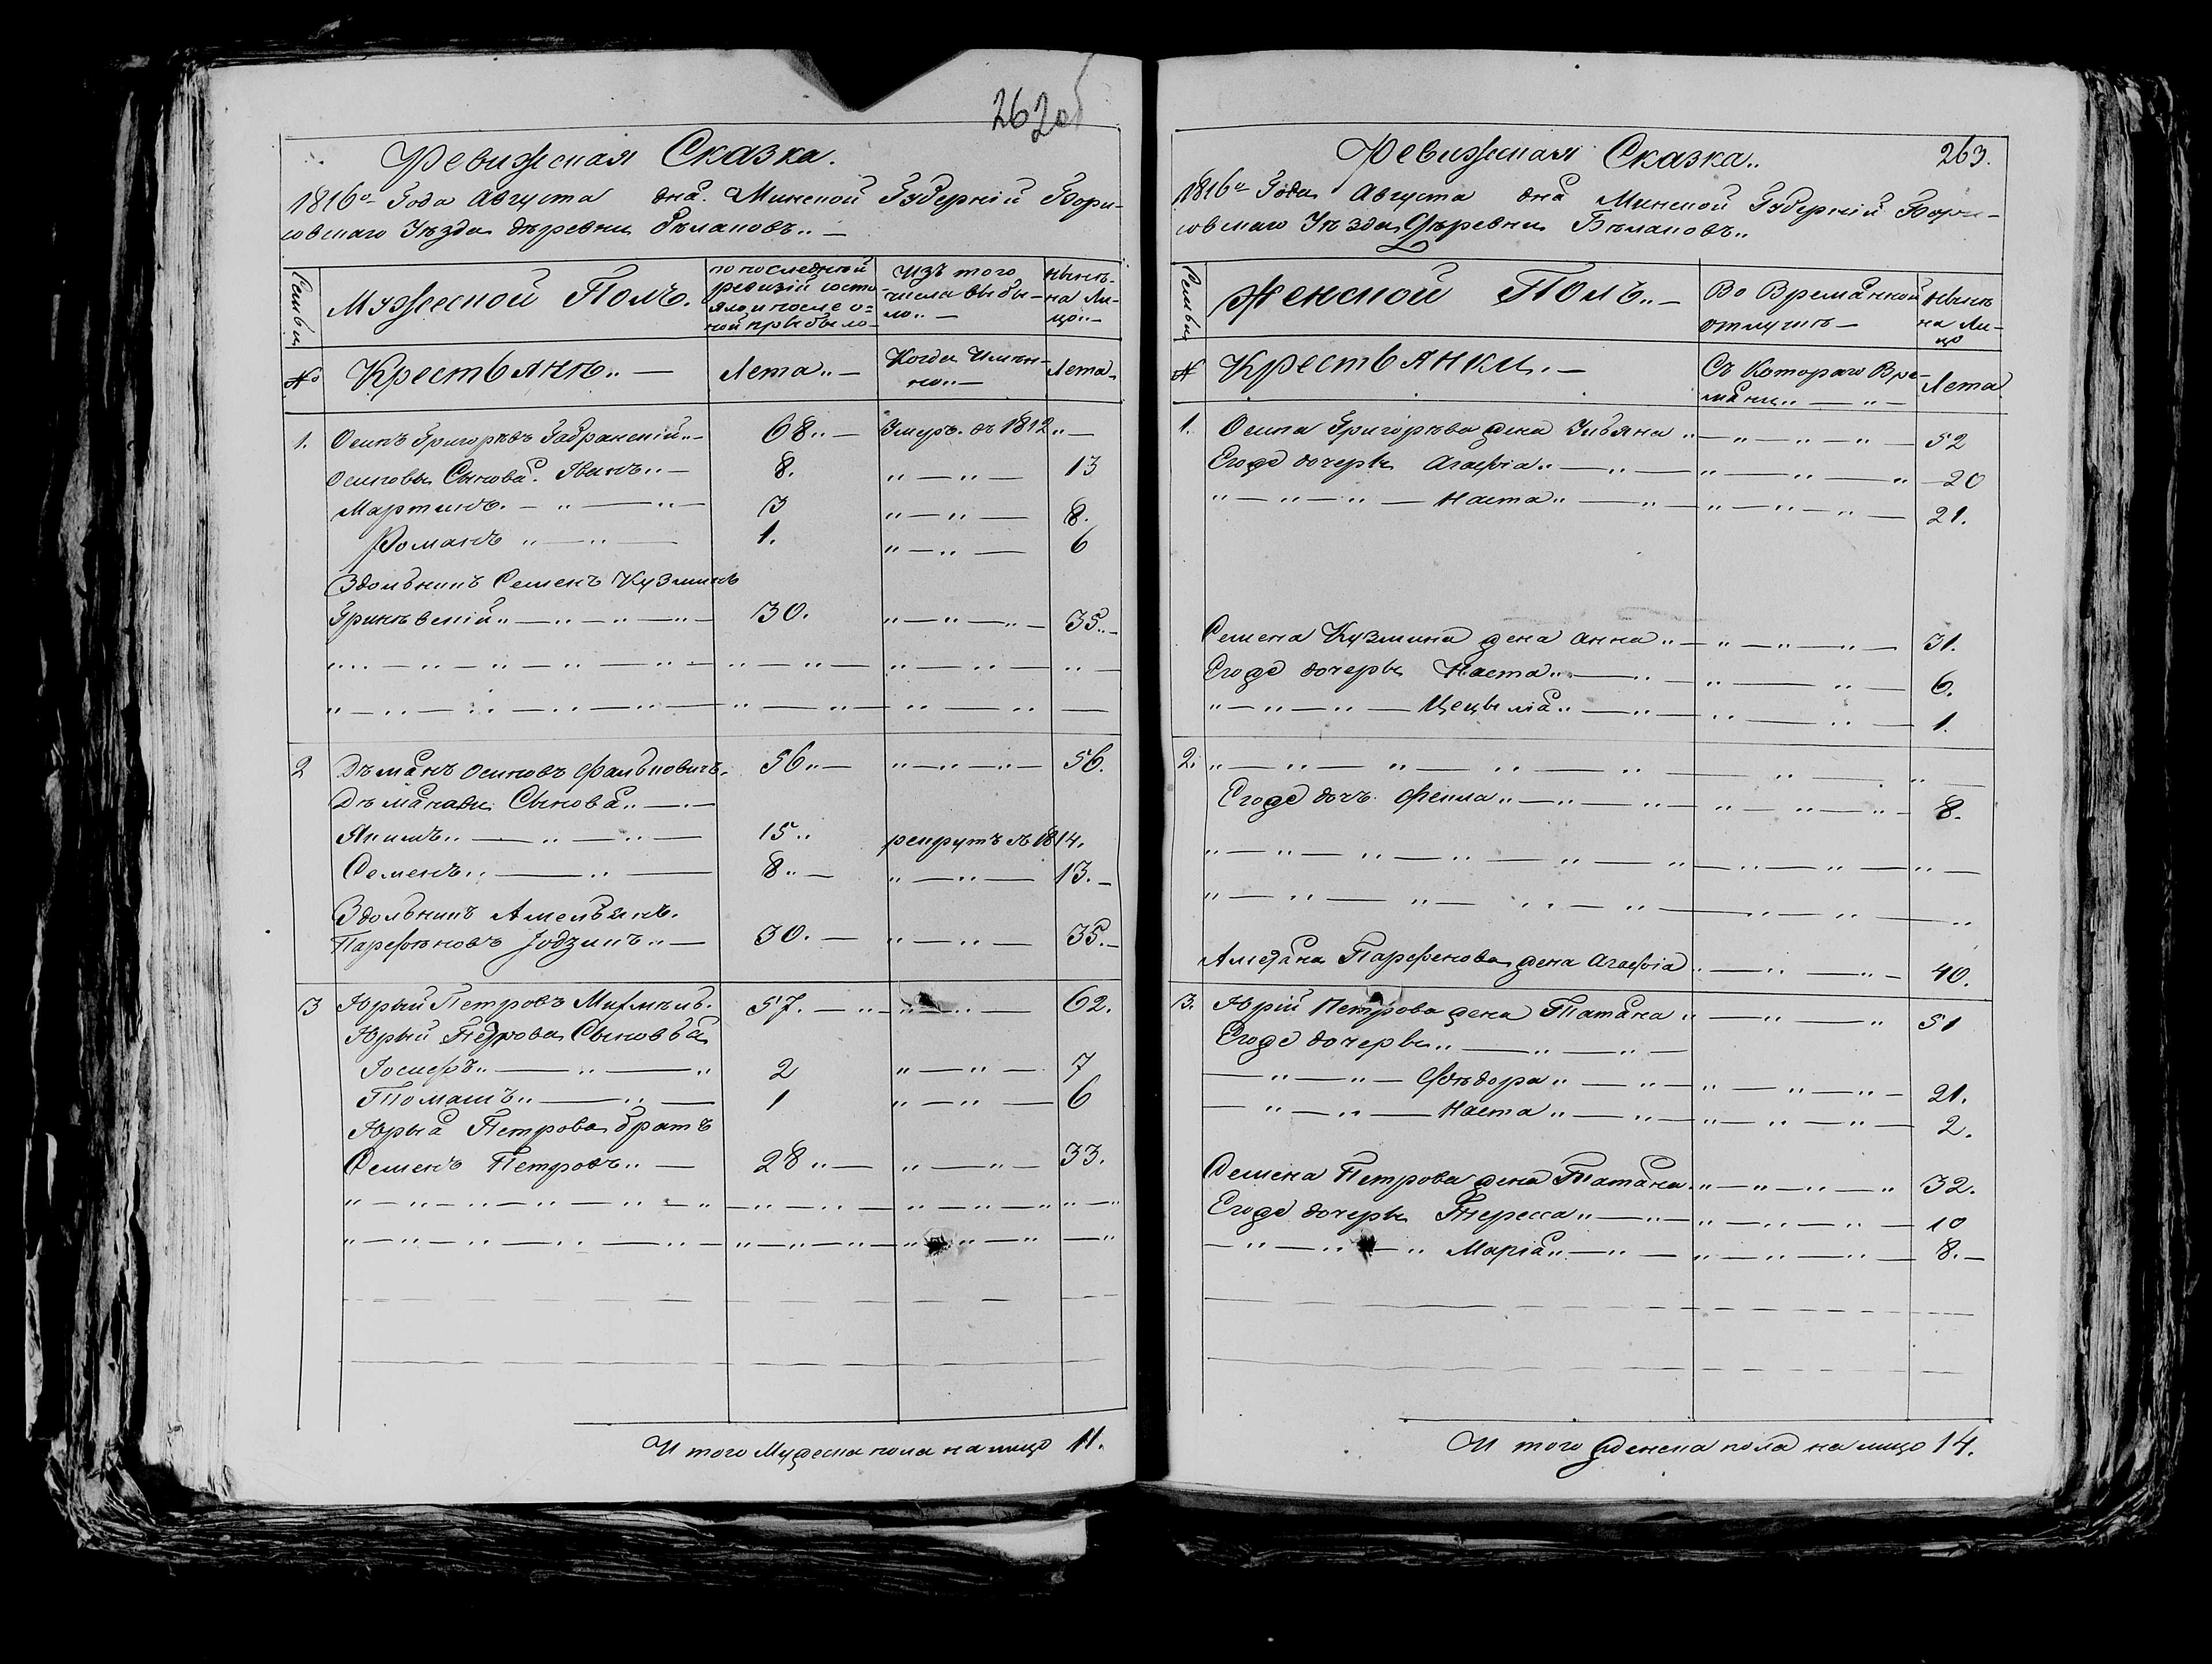 262об
Ревижская Сказка.
1816го Года Августа дня. Минской Губерніи Бори-
совскаго Уѣзда деревни Бѣлановъ
Семьи
Мужеской Полъ.
по последней
ревизіи состо
яло и после о=
ной прыбыло
Изъ того
числа выбы-
ло
Нынѣ
на Ли-
цо
№
Крестьянѣ
Лета
Когда Имен-
но
Лета
1. Осипъ Григорьевъ 68 Умеръ въ 1812
Осиповы Сыновья Иванъ 8. 13
Мартинъ 3 8.
Романъ 1. 6
Здольникъ Семенъ Кузминъ
Гриневскій 30. 35
2 Дѣмянъ Осиповъ Фальковичъ 56 56.
Дѣмянавы Сыновья
Якимъ 15 рекрутъ 1814.
Семенъ 8 13.
Здольникъ Амельянъ
Парфеновъ 30. 35.
3 Юрый Петровъ 57. 62.
Юрый Петрова Сыновья
Іосифъ 2 7
Томашъ 1 6
Юрыя Петрова братъ
Семенъ Петровъ 28 33.
И того Мужеска пола на лицо 11.
Ревижская Сказка 263.
1816го Года Августа дня Минской Губерніи Бори-
совскаго Уѣзда Деревни Бѣлановъ
Семьи
Женской Полъ
Во Временной
отлучкѣ
Нынѣ
на Ли-
цо
№
Крестьянки
Съ Котораго Вре-
мани
Лета
1. Осипа Григорьева жена Ульяна 52
Егоже дочеры Агафія 20
Наста 21.
Семена Кузмина жена Анна 31.
Егоже дочеры Наста 6.
Цецылія 1.
2.
Егоже дочъ Фекла 8.
Амеляна Парфенова жена Агафія 40.
3. Юрій Петрова жена Татяна 51
Егоже дочеры
Фѣдора 21.
Наста 2.
Семена Петрова жена Татяна 32.
Егоже дочеры Тересса 10
Марія 8.
И того женска пола на лицо 14.